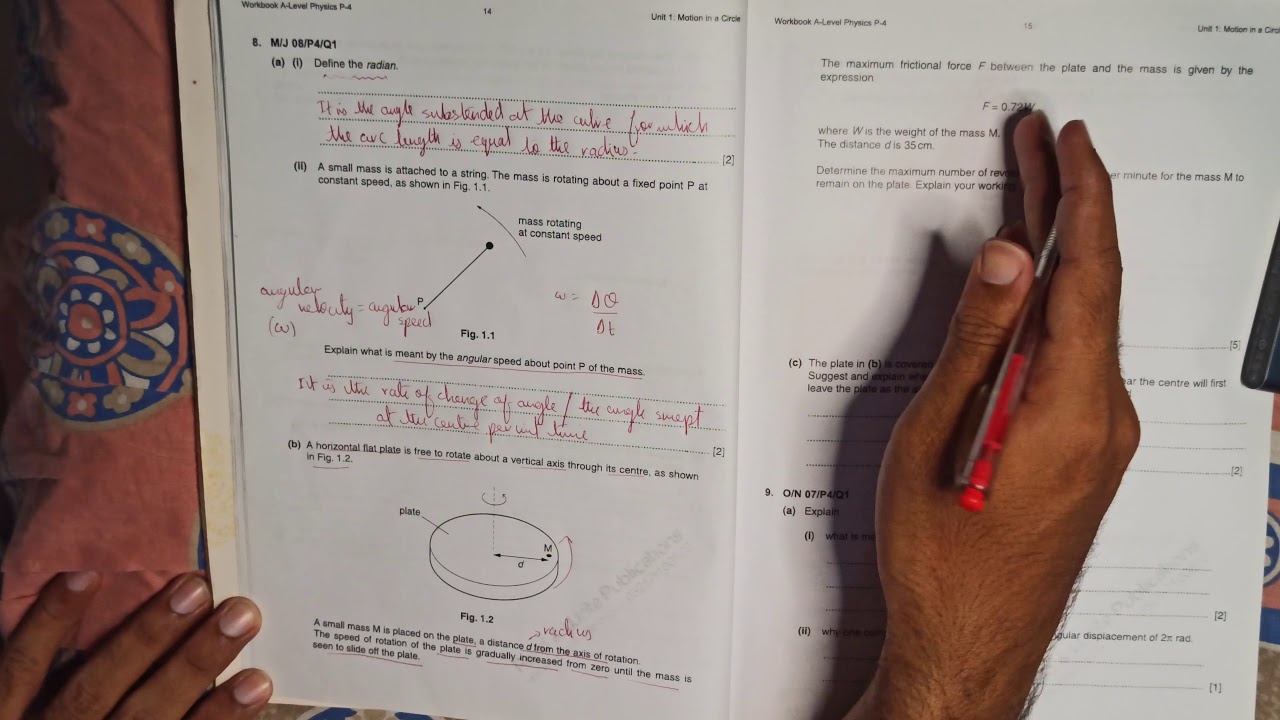 Workbook A-Level Physics P-4
14
Unit 1: Motion in a Circle
8. M/J 08/P4/Q1
(a) (i) Define the radian.
It is the angle substended at the centre for which
the arc length is equal to the radius.
[2]
(ii) A small mass is attached to a string. The mass is rotating about a fixed point P at
constant speed, as shown in Fig. 1.1.
mass rotating
at constant speed
P
angular
velocity = angular
speed
(ω)
ω = Δθ
Δt
Fig. 1.1
Explain what is meant by the angular speed about point P of the mass.
It is the rate of change of angle / the angle swept
at the centre per unit time
[2]
(b) A horizontal flat plate is free to rotate about a vertical axis through its centre, as shown
in Fig. 1.2.
plate
M
d
Fig. 1.2
radius
A small mass M is placed on the plate, a distance d from the axis of rotation.
The speed of rotation of the plate is gradually increased from zero until the mass is
seen to slide off the plate.
Workbook A-Level Physics P-4
15
Unit 1: Motion in a Circl
The maximum frictional force F between the plate and the mass is given by the
expression
F = 0.72W
where W is the weight of the mass M.
The distance d is 35 cm.
Determine the maximum number of er minute for the mass M to
remain on the plate. Explain your
[5]
(c) The plate in (b) is covered
Suggest and explain ar the centre will first
leave the plate as the
[2]
9. O/N 07/P4/Q1
(a) Explain
(i) what is
[2]
(ii) why one gular displacement of 2π rad.
[1]
Publications
Publications